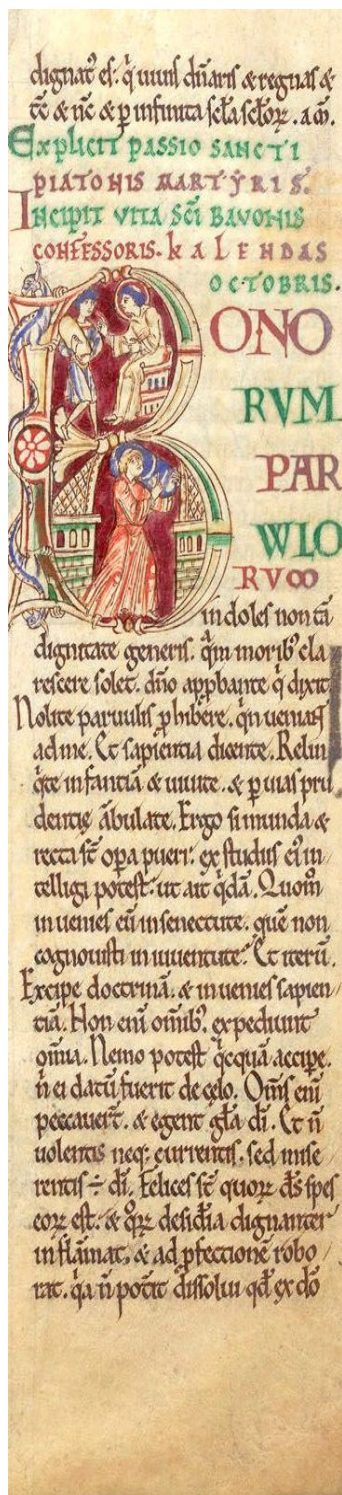 dignat᷒ es. q̇ uiuis dn̄aris & regnas &
tc̄ & nc̄ & ꝑ infinita sc̄la sc̄loꝝ. am̄.
Explicit passio sancti
piatonis martyris.
Incipit vita sc̄i bavonis
confessoris. kalendas
octobris.
BONO
RUM
PAR
WLO
RUM
indoles non tā
dignitate generis. q̄m morib᷒ cla
rescere solet. dn̄o app̄bante q̇ dixit.
Nolite paruulis ꝓhibere. qn̄ ueniant
ad me. Et sapientia dicente. Relin
q̇te infantiā & uiuite. & ꝑ uias pru
dentię ābulate. Ergo si munda &
recta st̄ oꝑa pueri: ex studiis ei᷒ in
telligi potest. ut ait q̇dā. Quom̄
inuenies eū in senectute. quē non
cognouisti in iuuentute. Et iterū.
Excipe doctrinā. & inuenies sapien
tiā. Non eni᷒ om̄ib᷒ expediunt
om̄ia. Nemo potest q̇cquā accipe.
n̄ ei datū fuerit de cęlo. Om̄s eni᷒
peccauer̄t. & egent gl̄a dī. Et n̄
uolentis neq; currentis. sed mise
rentis ÷ dī. Felices st̄ quoꝝ dс̄ spes
eoꝝ est. & qͦꝝ desidia dignanter
inflām̄at. & ad ꝑfectionē robo
rat. q̇a n̄ pot̄it dissolui qd̄ ex dō